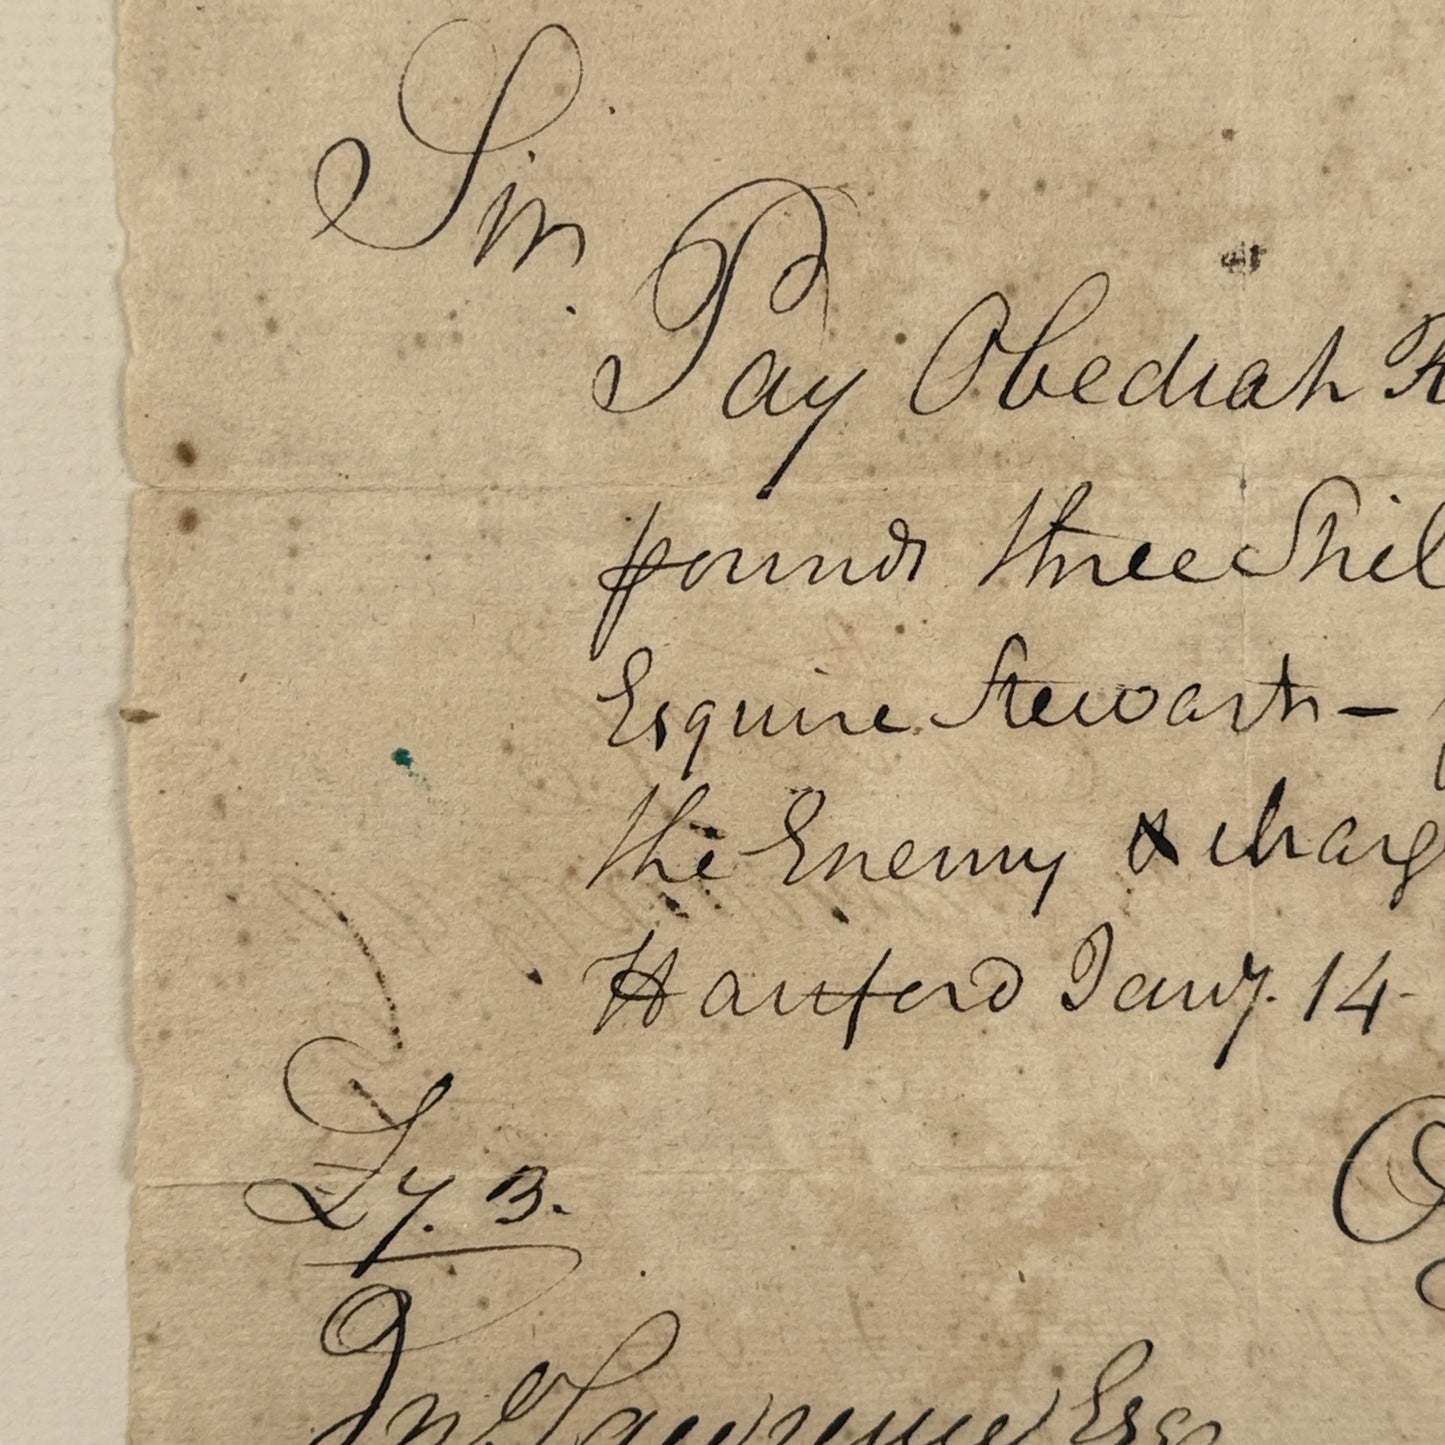 Sir
Pay Obediah
pounds three Shil
Esquire Stewarts –
the Enemy & charg
Harford Jany. 14
£7. 3.
Jno Lawrence Esqr